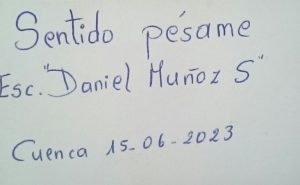 Sentido pésame
Esc. "Daniel Muñoz S"
Cuenca 15-06-2023